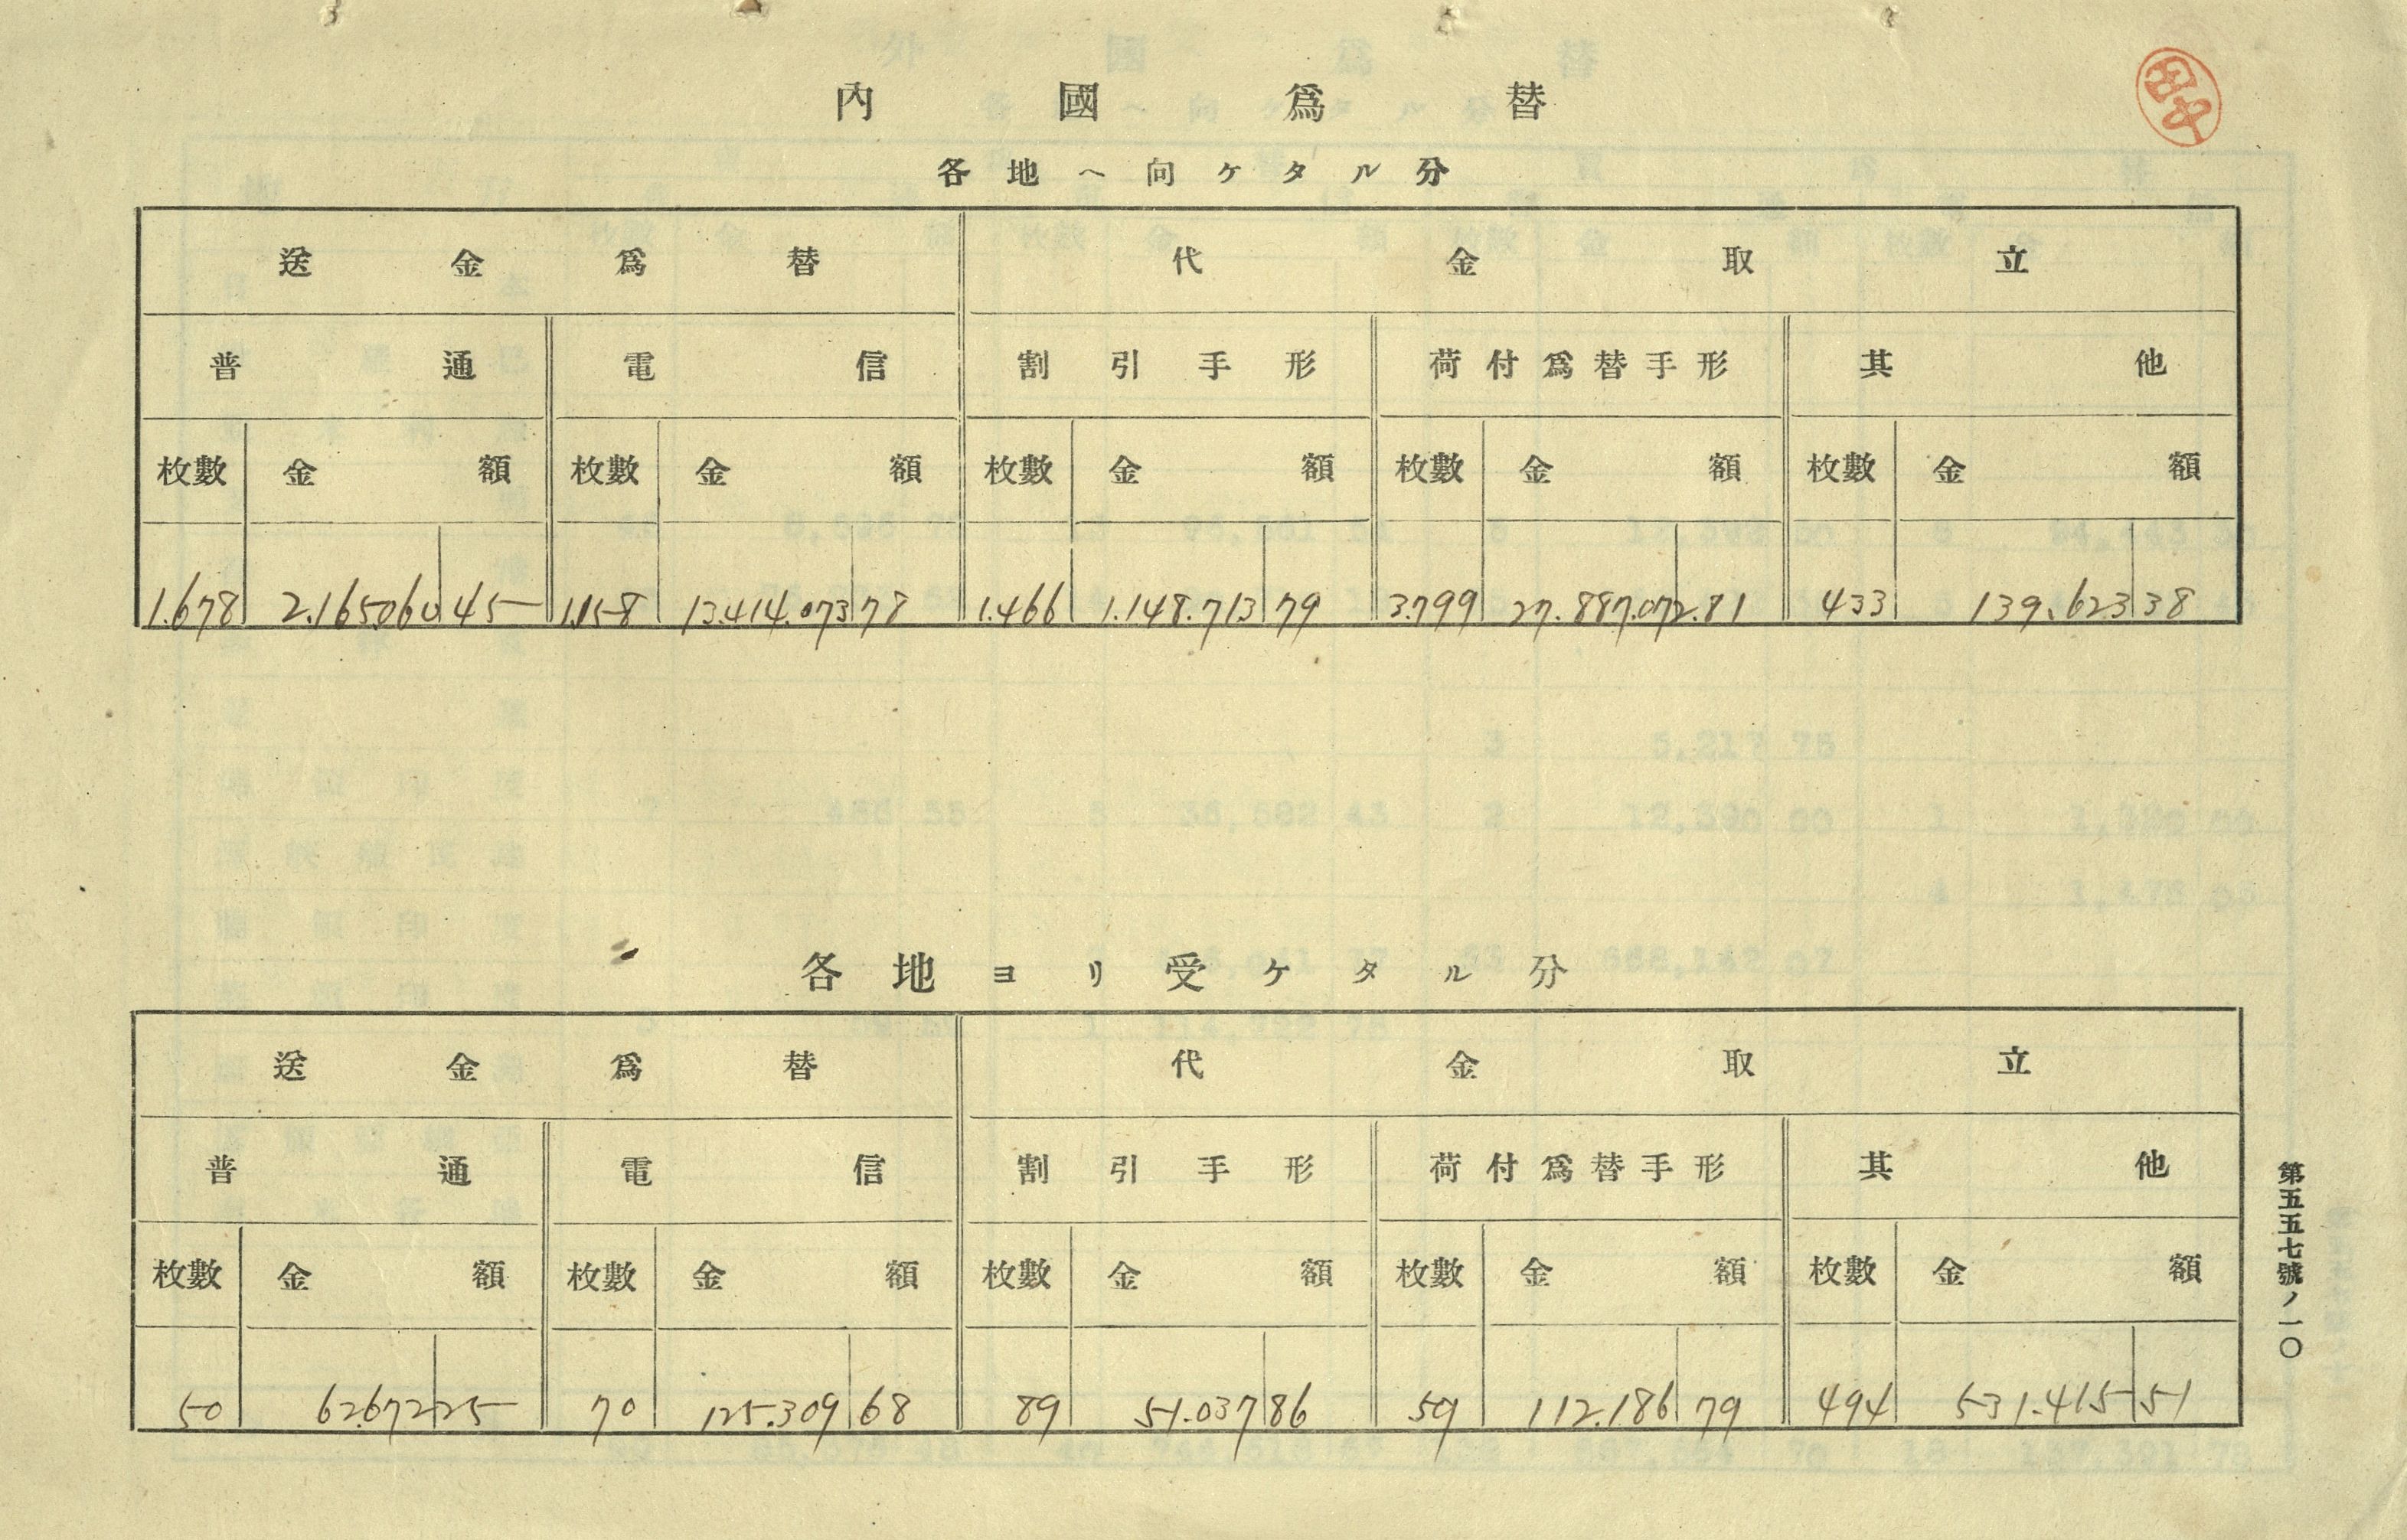 田中
內國爲替
各地へ向ケタル分
送金爲替 代金取立
普通 電信 割引手形 荷付爲替手形 其他
枚數 金額 枚數 金額 枚數 金額 枚數 金額 枚數 金額
1.678 2.165.060 45 1.158 13.414.073 78 1.466 1.148.713 79 3.799 27.887.072.81 433 139.623 38
各地ヨリ受ケタル分
送金爲替 代金取立
普通 電信 割引手形 荷付爲替手形 其他
枚數 金額 枚數 金額 枚數 金額 枚數 金額 枚數 金額
50 62.672 25 70 125.309 68 89 51.037 86 59 112.186 79 494 531.415 51
第五五七號ノ一〇